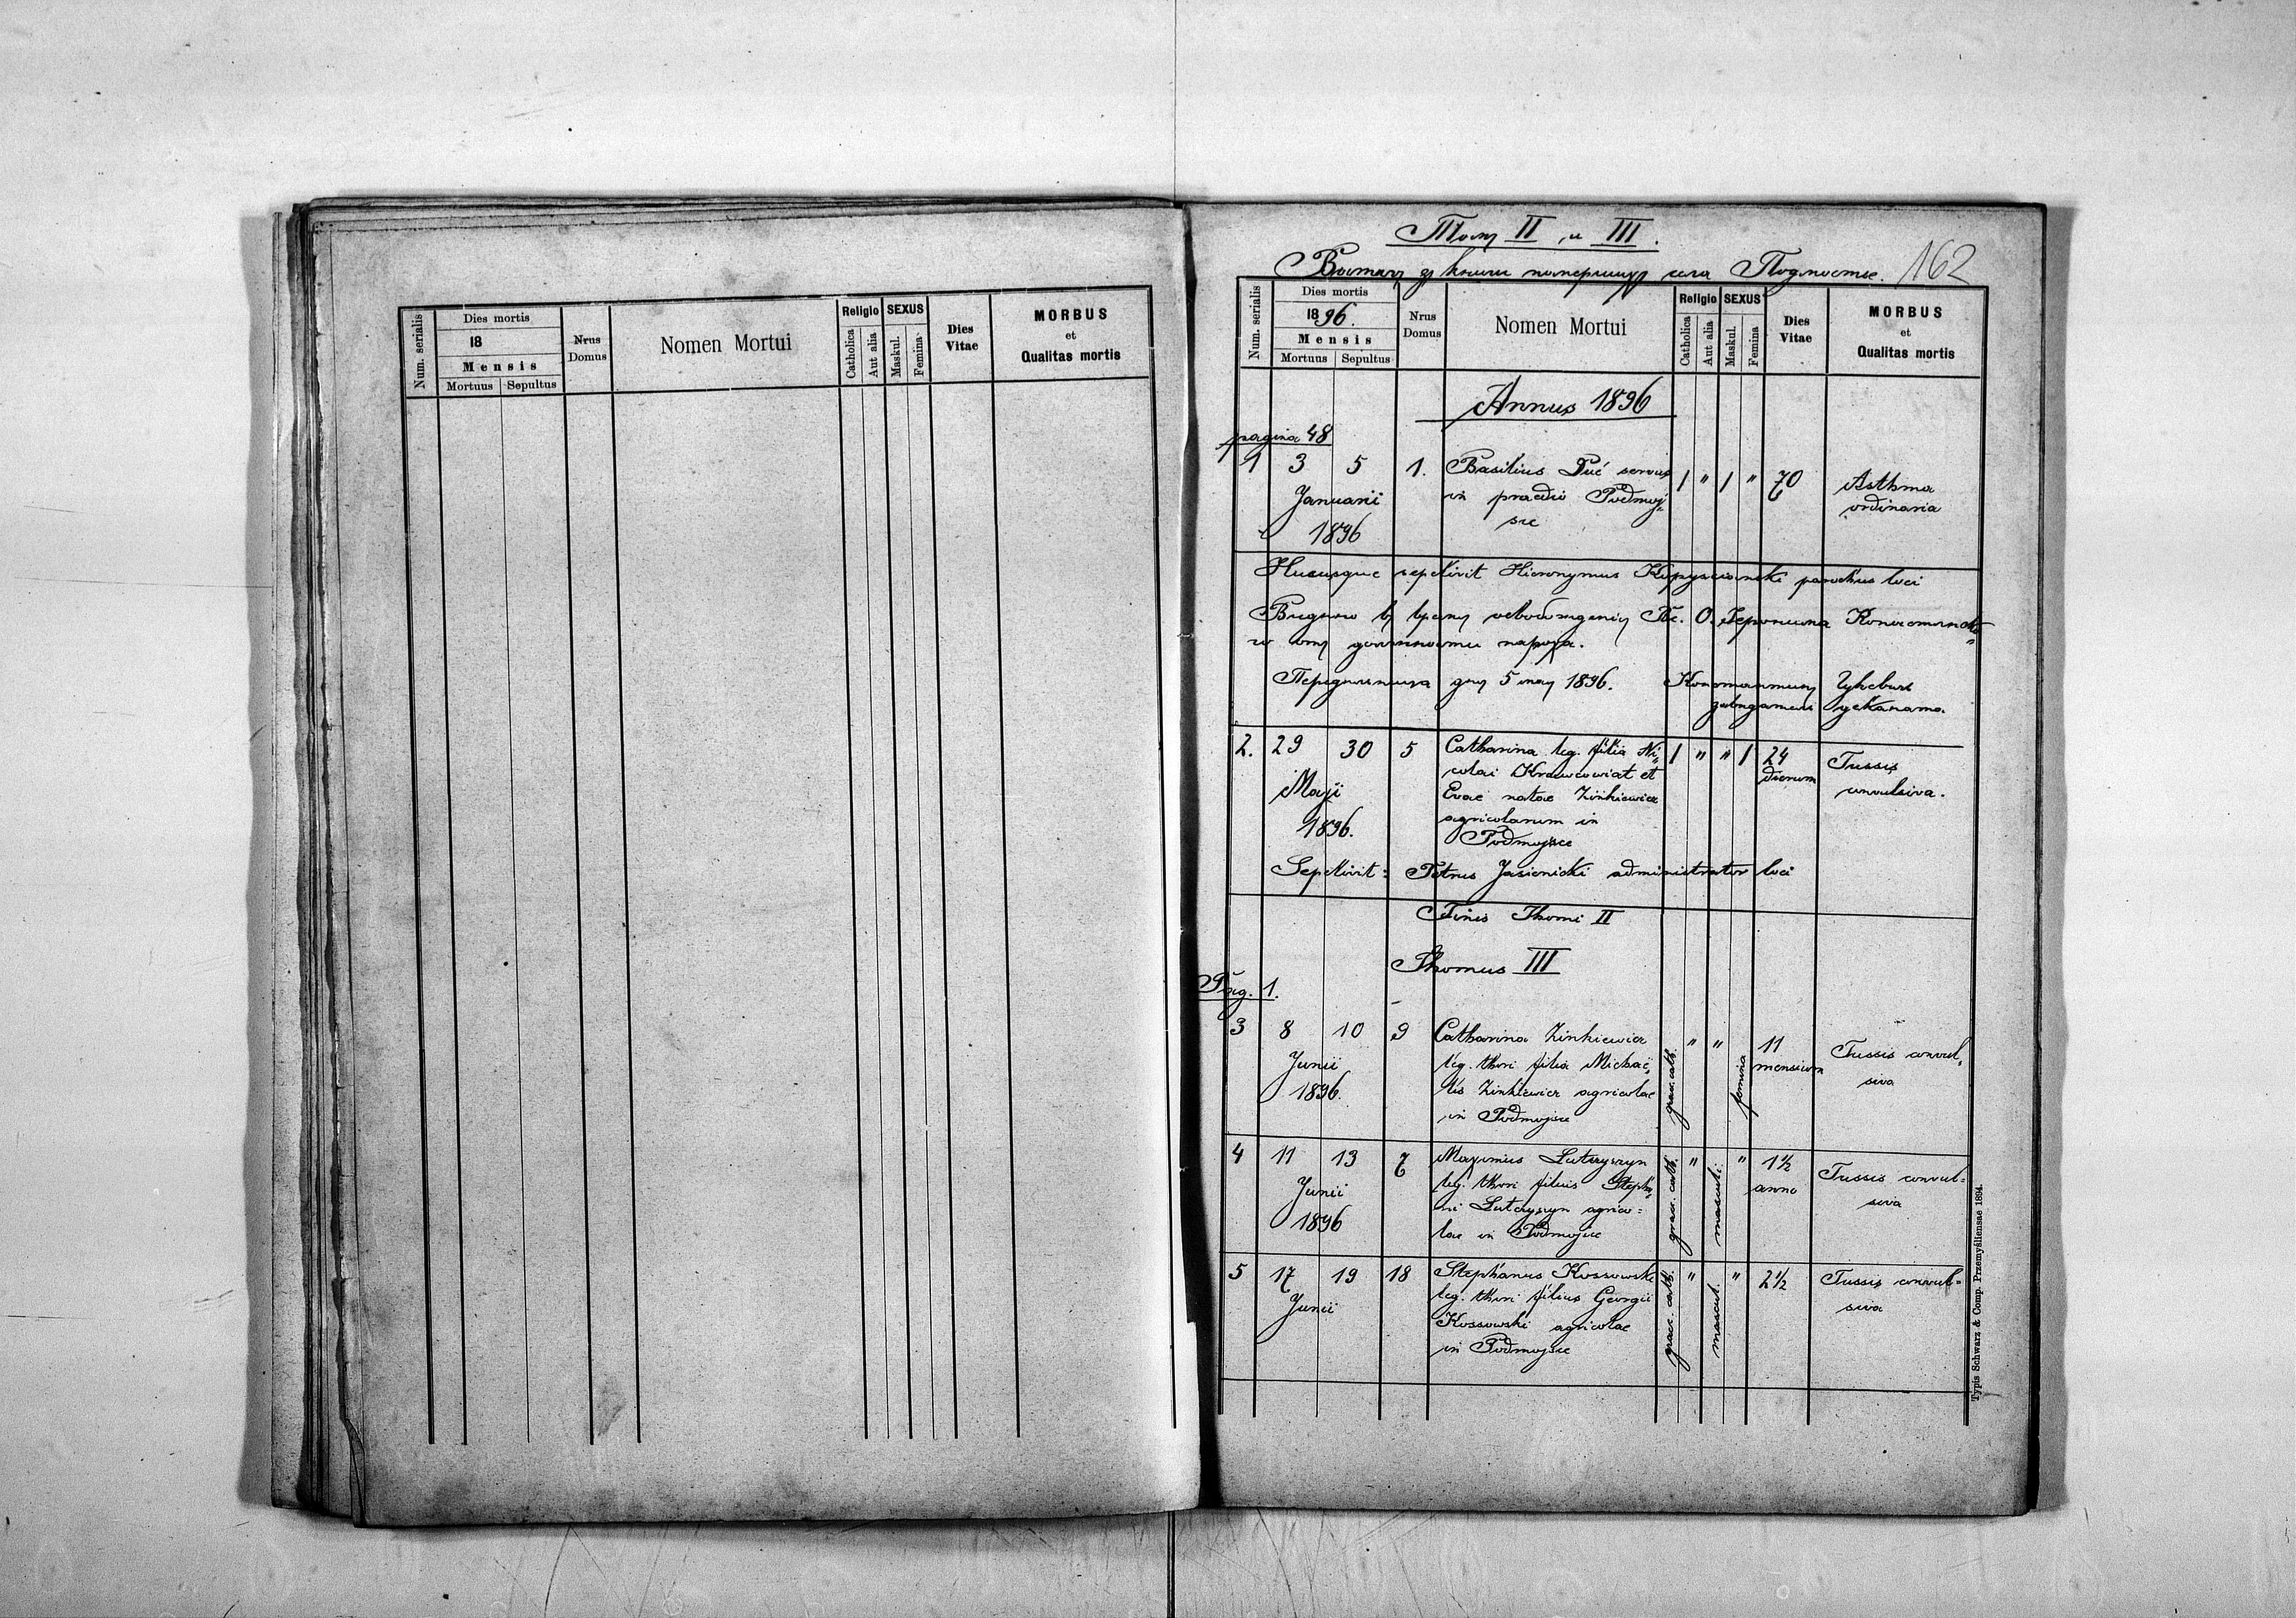 Num. serialis
Dies mortis
18
Mensis
Mortuus Sepultus
Nrus
Domus
Nomen Mortui
Religio
Catholica
Aut alia
SEXUS
Maskul.
Femina
Dies
Vitae
MORBUS
et
Qualitas mortis
Томъ II и III.
зъ книги села 162
Num. serialis
Dies mortis
1896.
Mensis
Mortuus Sepultus
Nrus
Domus
Nomen Mortui
Religio
Catholica
Aut alia
SEXUS
Maskul.
Femina
Dies
Vitae
MORBUS
et
Qualitas mortis
Annus 1896
pagina 48
1 3 5 1. Basilius Puć servus 1 " 1 " 70 Asthma
Januarii in praedio Podmoj= ordinaria
1896 sce
Hucusque sepelivit Hieronymus parochus loci
О.
5 мая 1896.
2. 29 30 5 Catharina leg. filia Ni= 1 " " 1 24 Tussis
colai Krawcowiat et dierum convulsiva.
Maji Evae natae Zinkiewicz
1896. agricolarum in
Podmojsce
Sepelivit: Petrus Jasienicki administrator loci
Finis Thomi II
Thomus III
Pag. 1.
3 8 10 9 Catharina Zinkiewicz graec. cath. " " femina 11 Tussis convul=
Junii leg. thori filia Michaë= mensium siva
1896. lis Zinkiewicz agricolae
in Podmojsce
4 11 13 7 Maximus Lutczyszyn graec. cath. " masculi. " 1½ Tussis convul=
Junii leg. thori filius Stepha= anno siva
1896 ni Lutczyszyn agrico=
lae in Podmojsce
5 17 19 18 Stephanus Kossowski graec. cath. " mascul. " 2½ Tussis convul=
Junii leg. thori filius Georgii siva
Kossowski agricolae
in Podmojsce
Typis Schwarz & Comp. Przemyśliensae 1894.